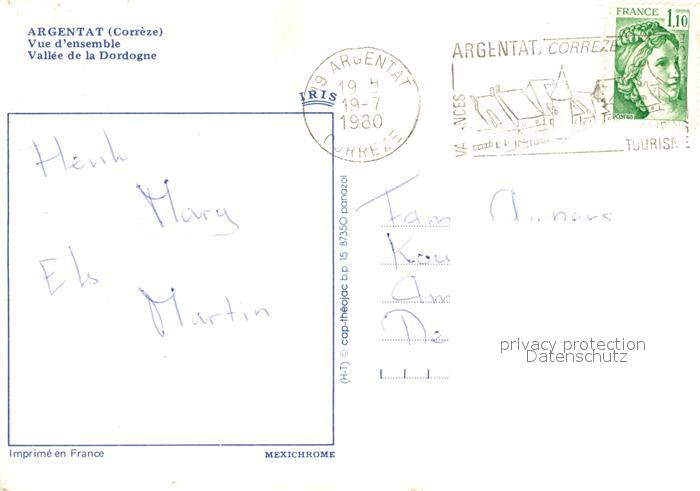 ARGENTAT (Corrèze)
Vue d'ensemble
Vallée de la Dordogne
IRIS
19 ARGENTAT
19 H
19-7
1980
CORREZE
ARGENTAT, CORREZE
VACANCES
TOURIS
FRANCE
1,10
Henk
Mary
Els
Martin
(H-T) © cap-théojac b.p. 15 87350 panazol
Fam
Kou
Am
De
privacy protection
Datenschutz
Imprimé en France
MEXICHROME